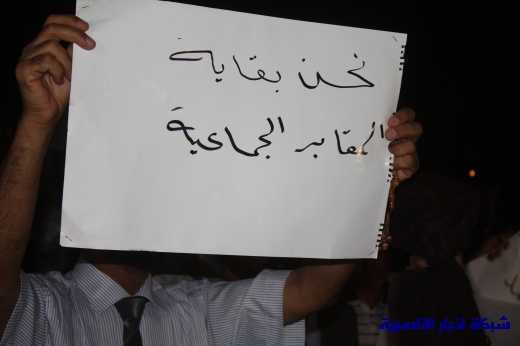 نحن بقاية
المقابر الجماعية
شبكة اخبار الناصرية